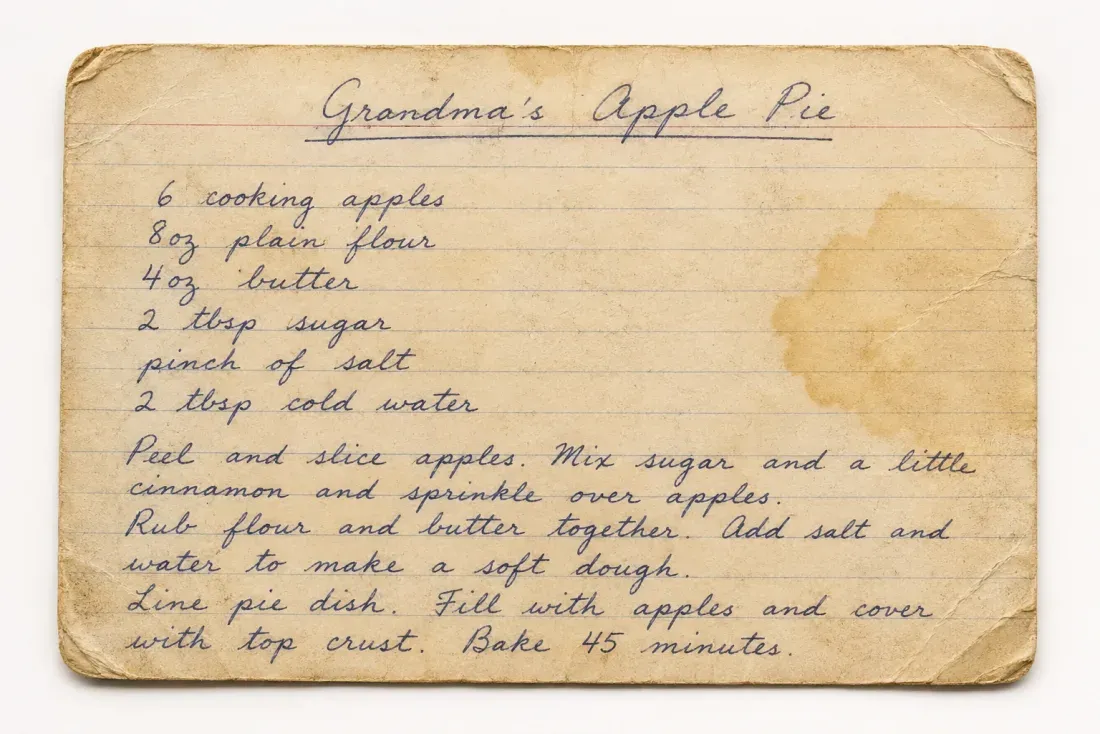 Grandma's Apple Pie
6 cooking apples
8oz plain flour
4oz butter
2 tbsp sugar
pinch of salt
2 tbsp cold water
Peel and slice apples. Mix sugar and a little
cinnamon and sprinkle over apples.
Rub flour and butter together. Add salt and
water to make a soft dough.
Line pie dish. Fill with apples and cover
with top crust. Bake 45 minutes.